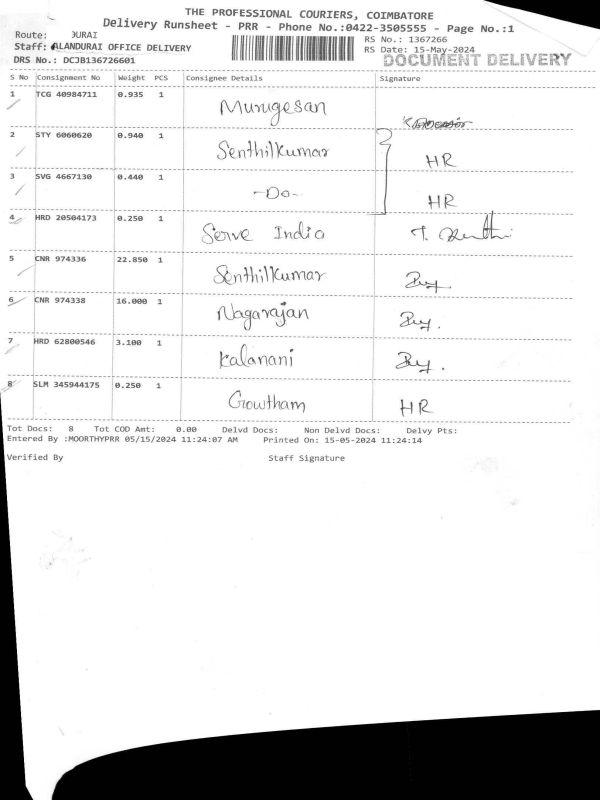 THE PROFESSIONAL COURIERS, COIMBATORE
Delivery Runsheet - PRR - Phone No.:0422-3505555 - Page No.:1
Route: JURAI
RS No.: 1367266
Staff: ALANDURAI OFFICE DELIVERY
RS Date: 15-May-2024
DRS No.: DCJB136726601
DOCUMENT DELIVERY
S No Consignment No Weight PCS Consignee Details Signature
1 TCG 40984711 0.935 1 Murugesan
2 STY 6060620 0.940 1 Senthilkumar HR
3 SVG 4667130 0.440 1 -Do- HR
4 HRD 20504173 0.250 1 Serve India
5 CNR 974336 22.850 1 Senthilkumar
6 CNR 974338 16.000 1 Nagarajan
7 HRD 62800546 3.100 1 Kalanani
8 SLM 345944175 0.250 1 Growtham HR
Tot Docs: 8 Tot COD Amt: 0.00 Delvd Docs: Non Delvd Docs: Delvy Pts:
Entered By :MOORTHYPRR 05/15/2024 11:24:07 AM Printed On: 15-05-2024 11:24:14
Verified By Staff Signature